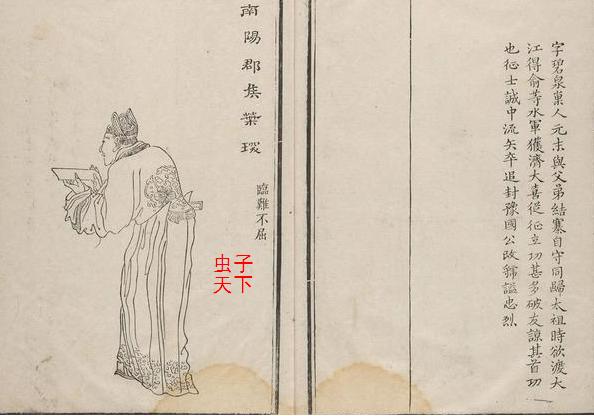 字碧泉巢人元末與父弟結寨自守同歸太祖時欲渡大
江得俞等水軍獲濟大喜從征立功甚多破友諒其首功
也征士誠中流矢卒追封豫國公改虢諡忠烈
南陽郡矦葉琛
臨難不屈
虫子
天下